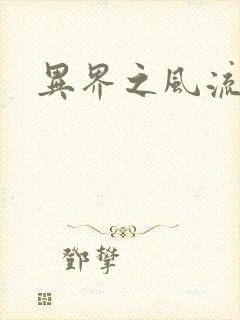 異界之風流
鄧攀